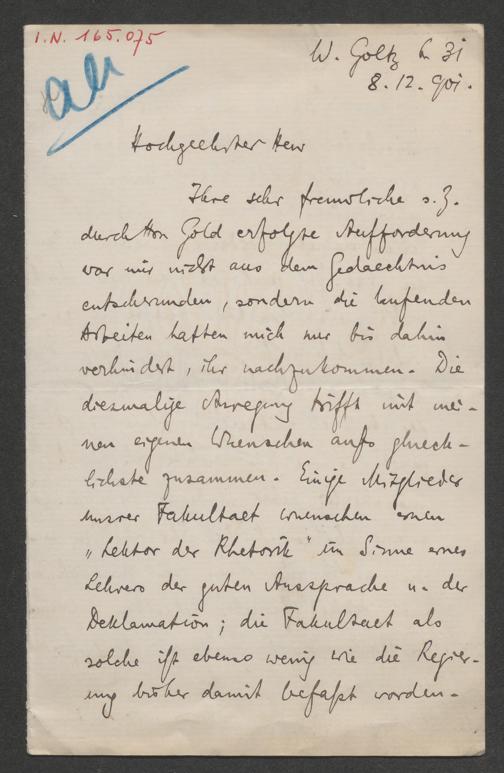 I.N. 165.075
W. Goltz 31
8.12.901.
Hochgeehrter Herr
Ihre sehr freundliche s. Z.
durch Hrn Gold erfolgte Aufforderung
war mir nicht aus dem Gedaechtnis
entschwunden, sondern die laufenden
Arbeiten hatten mich nur bis dahin
verhindert, ihr nachzukommen. Die
diesmalige Anregung trifft mit mei-
nen eigenen Wuenschen aufs glueck-
lichste zusammen. Einige Mitglieder
unsrer Fakultaet wuenschen einen
„Lektor der Rhetorik" im Sinne eines
Lehrers der guten Aussprache u. der
Deklamation; die Fakultaet als
solche ist ebenso wenig wie die Regier-
ung bisher damit befaßt worden.